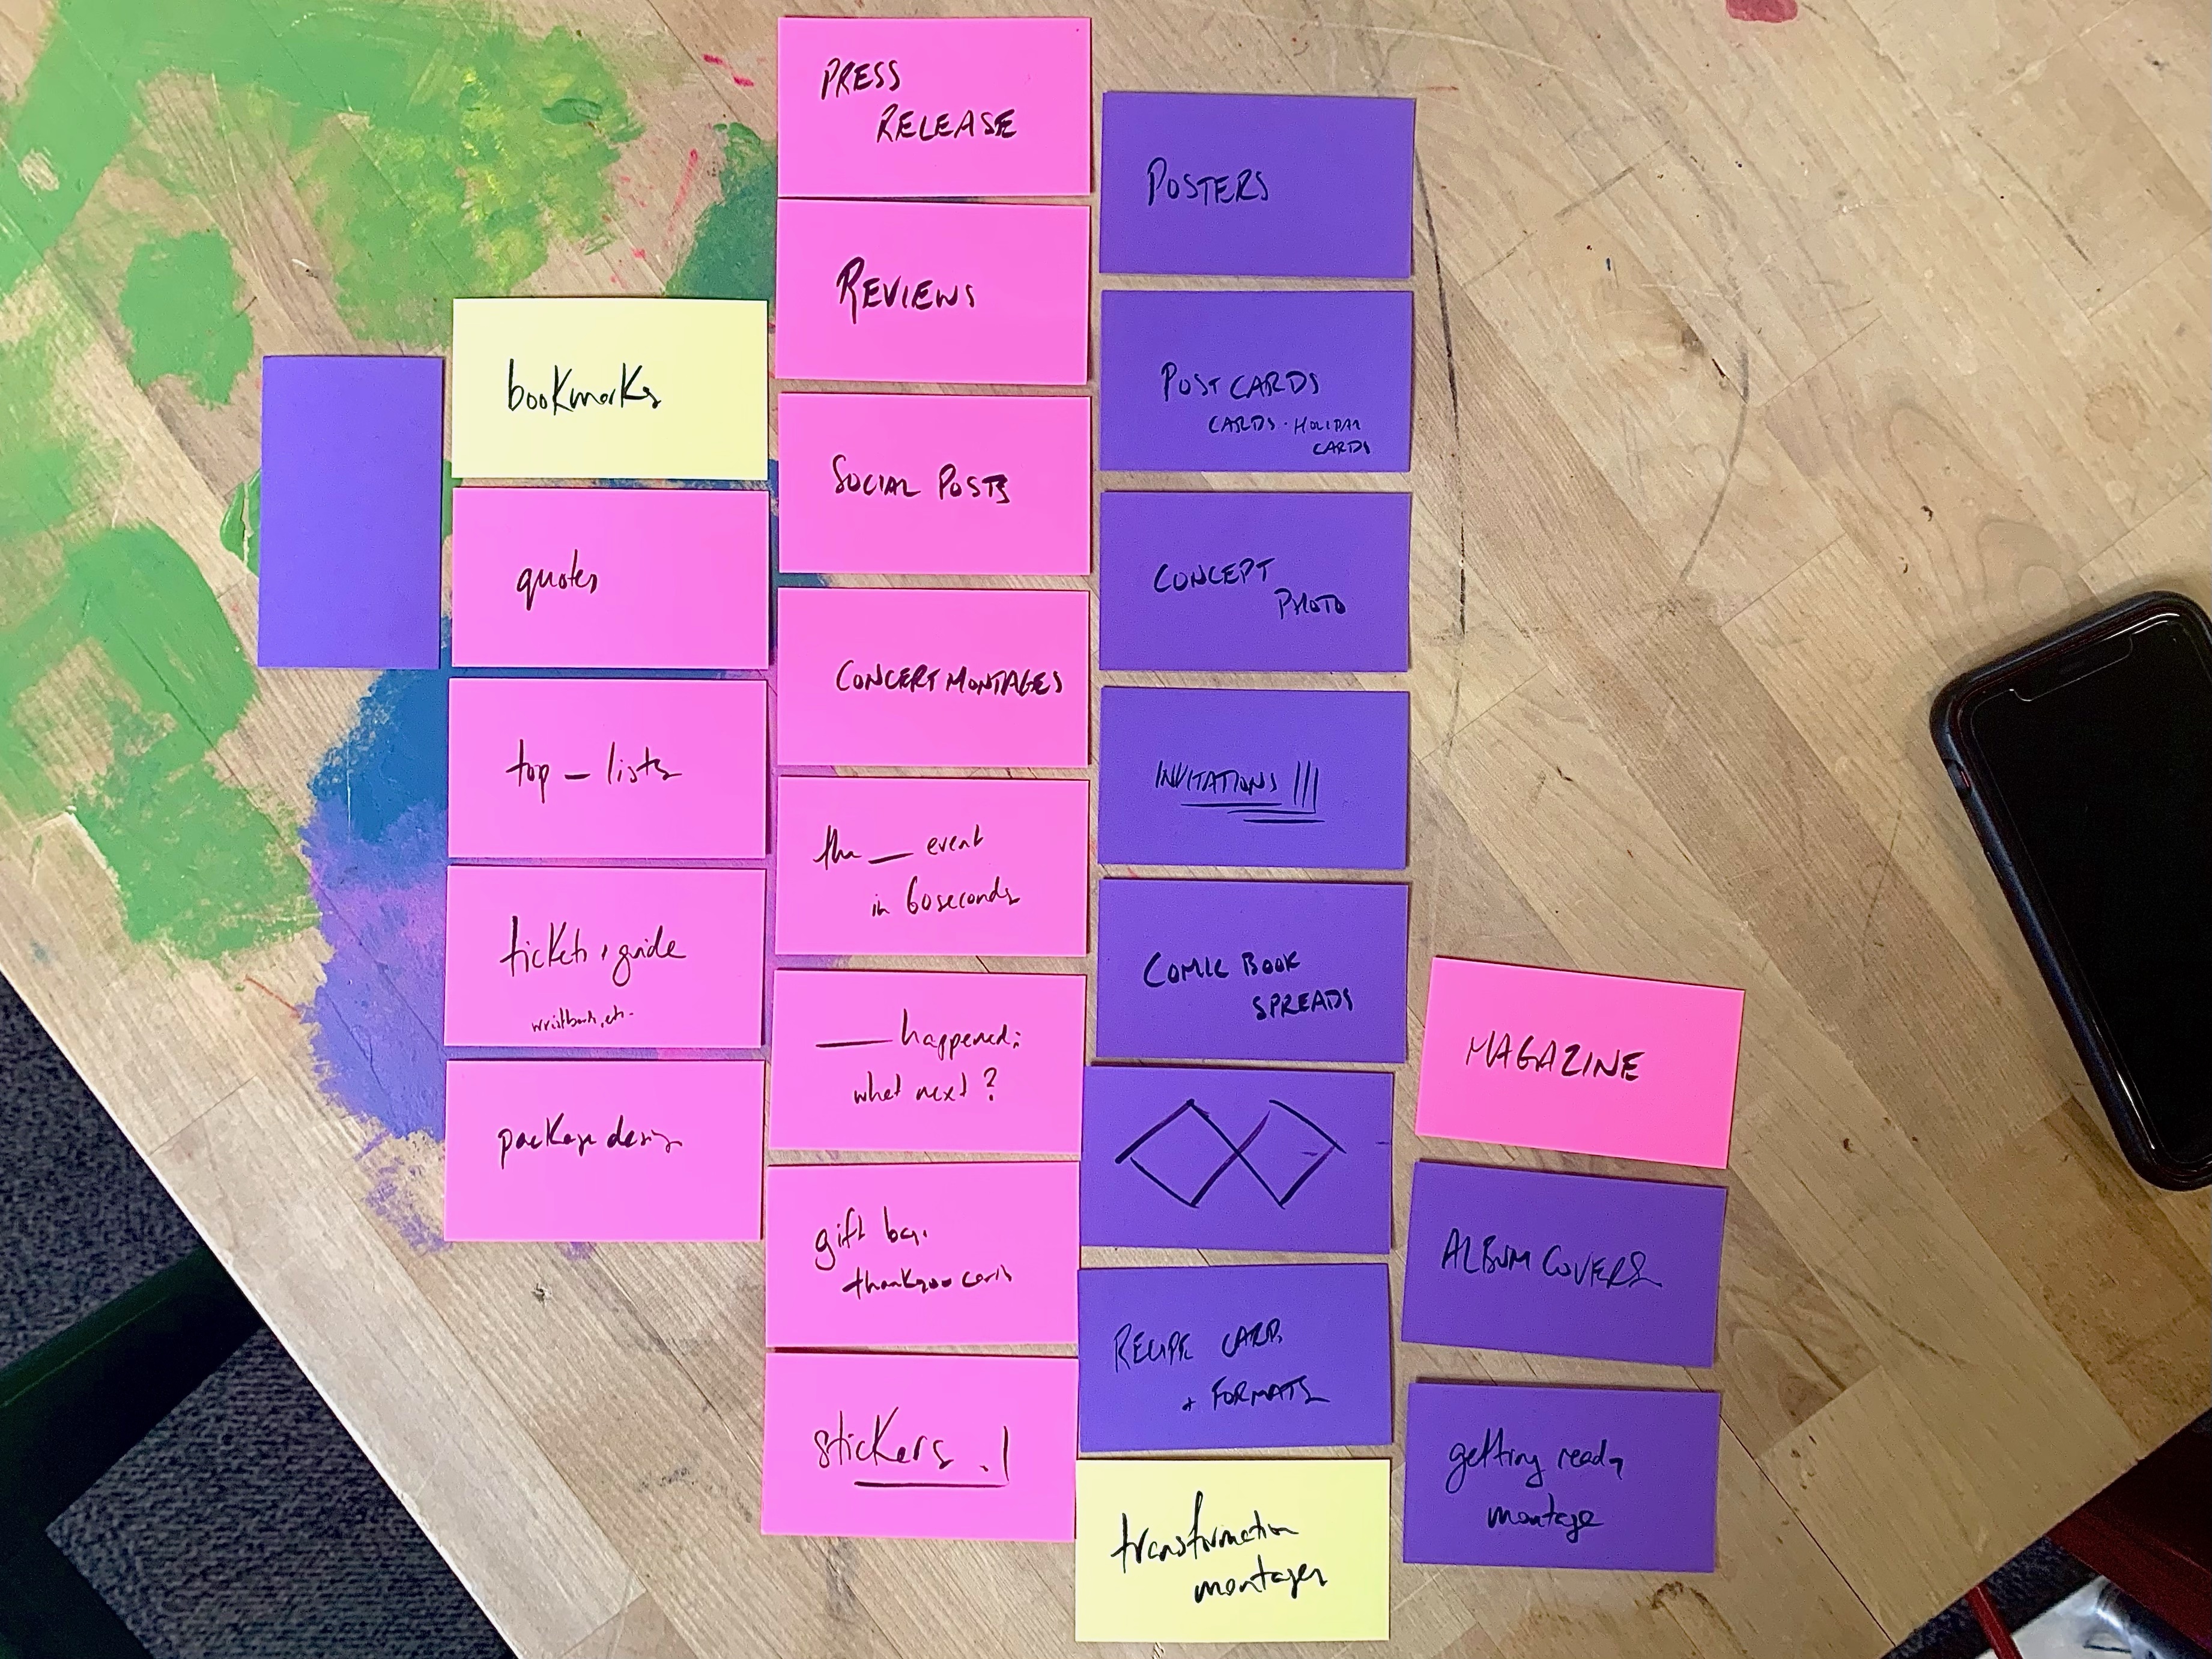 bookmarks
quotes
top _ lists
tickets + guide
wristbands, etc.
package design
PRESS
RELEASE
REVIEWS
SOCIAL POSTS
CONCERT MONTAGES
the __ event
in 60 seconds
___ happened:
what next?
gift bag.
thank you cards
stickers !
POSTERS
POST CARDS
CARDS · HOLIDAY
CARDS
CONCEPT
PHOTO
INVITATIONS !!!
COMIC BOOK
SPREADS
RECIPE CARDS
+ FORMATS
transformation
montages
MAGAZINE
ALBUM COVERS
getting ready
montage